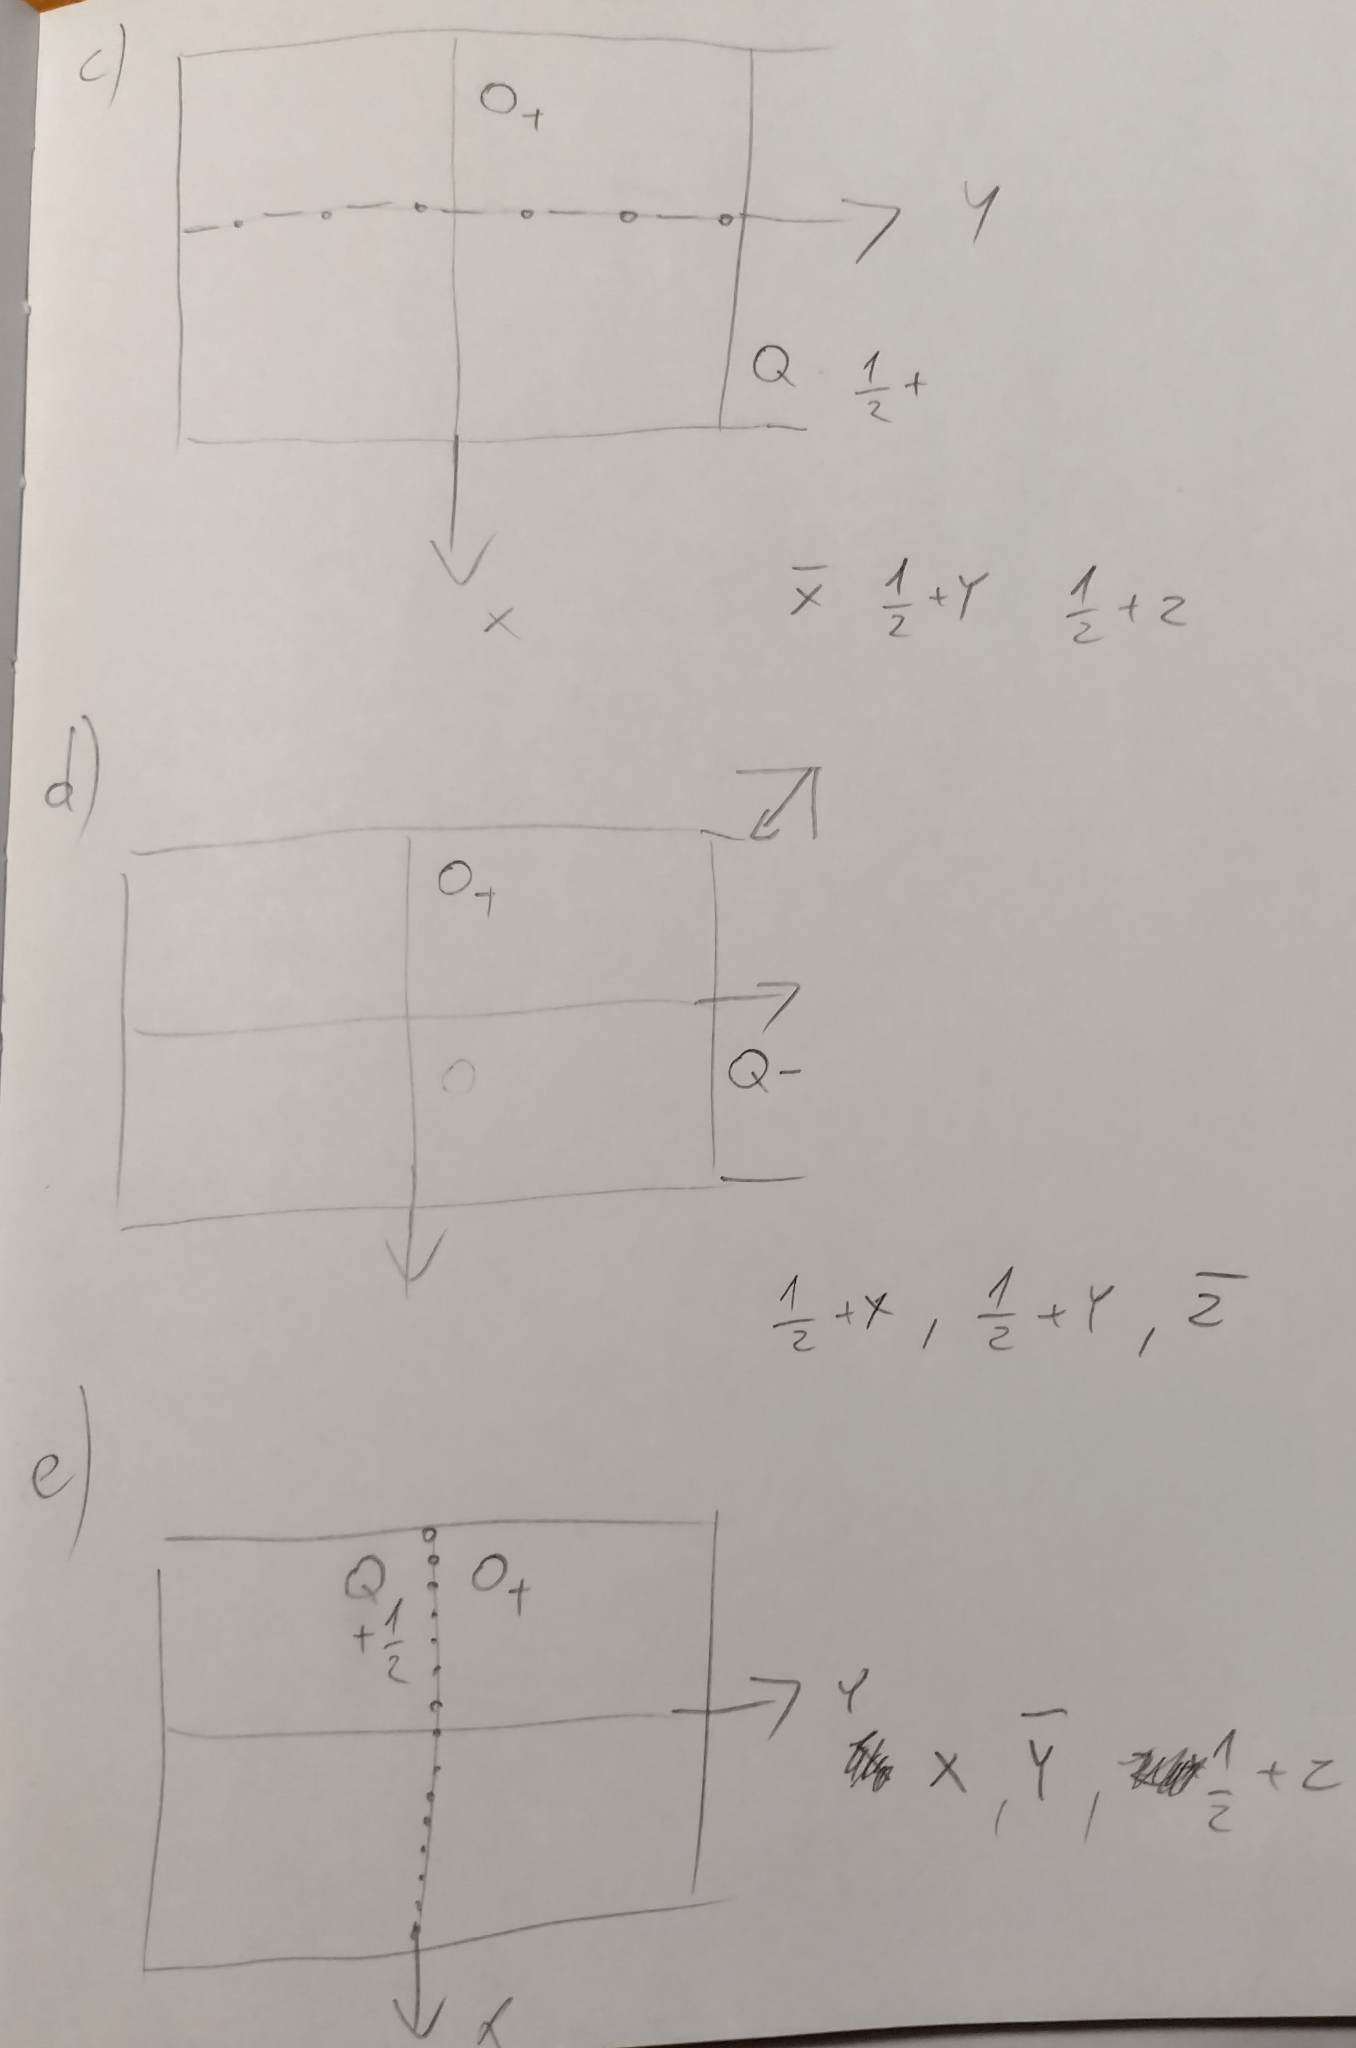 c)
O+
Y
Q 1/2+
X
x̄ 1/2+Y 1/2+z
d)
O+
O
Q-
1/2+x, 1/2+Y, z̄
e)
Q O+
+1/2
Y
x, Ȳ, 1/2+z
x